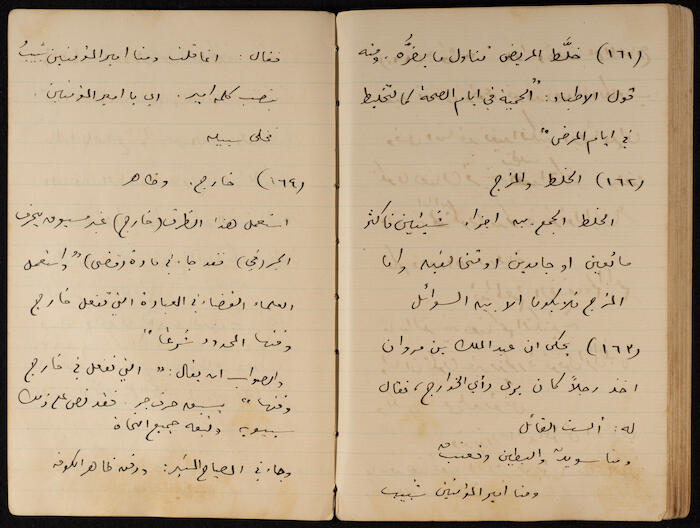 (١٦١) خلَّط المريض تناول ما يضرُّه. ومنه
قول الاطباء: "الحمية في ايام الصحة كالتخليط
في ايام المرض"
(١٦٢) الخلط والمزج
الخلط الجمع بين اجزاء شيئين فاكثر
مائعين او جامدين او متخالفين واما
المزج فلا يكون الا بين السوائل
(١٦٣) يحكى ان عبد الملك بن مروان
اخذ رجلاً كان يرى رأي الخوارج، فقال
له: ألست القائل
ومنا سويد والبطين وقعنب
ومنا امير المؤمنين شبيب
فقال: انما قلت ومنا امير المؤمنين شبيب
بنصب كلمة امير. اي يا امير المؤمنين.
فخلى سبيله
(١٦٤) خارج. وظاهر
استعمل هذا الظرف (خارج) غير مسبوق بحرف
الجر (في) فقد جاء في مادة (قضى) "واستعمل
العلماء القضاء في العبادة التي تفعل خارج
وقتها المحدود شرعًا"
والصواب ان يقال: "التي تفعل في خارج
وقتها" يسبقه حرف جر. فقد نص على ذلك
سيبويه وتبعه جميع النحاة
وجاء في المصباح المنير: ودفن ظاهر الكوفة